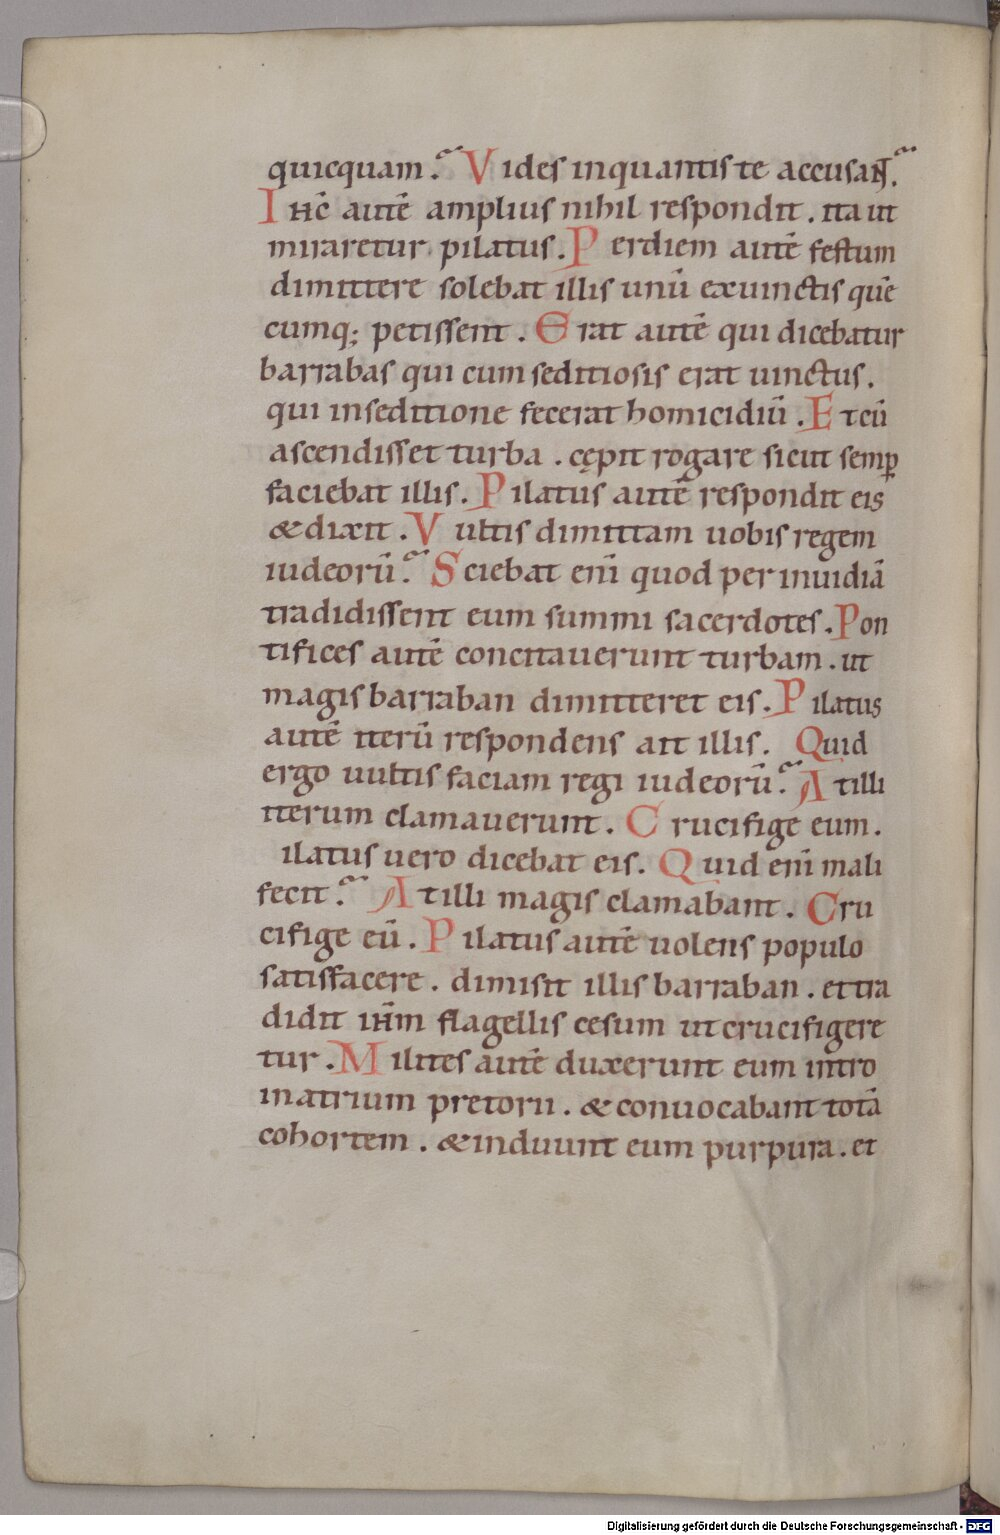 quicquam. Vides inquantis te accusaɴ̄t.
Iħc autē amplius nihil respondit. ita ut
miraretur pilatus. Perdiem autē festum
dimittere solebat illis unū exuinctis quē
cumq; petissent. Erat autē qui dicebatur
barrabas qui cum seditiosis erat uinctus.
qui inseditione fecerat homicidiū. Et cū
ascendisset turba. cępit rogare sicut semꝑ
faciebat illis. Pilatus autē respondit eis
&dixit. Vultis dimittam uobis regem
iudeorū. Sciebat eni̅ quod per inuidiā
tradidissent eum summi sacerdotes. Pon
tifices autē concitauerunt turbam. ut
magis barraban dimitteret eis. Pilatus
autē iterū respondens ait illis. Quid
ergo uultis faciam regi iudeorū. Atilli
iterum clamauerunt. Crucifige eum.
ilatus uero dicebat eis. Quid eni̅ mali
fecit. Atilli magis clamabant. Cru
cifige eū. Pilatus autē uolens populo
satisfacere. dimisit illis barraban. et tra
didit iħm flagellis cesum ut crucifigere
tur. Milites autē duxerunt eum intro
inatrium pretorii. &conuocabant totā
cohortem. &induunt eum purpura. et
Digitalisierung gefördert durch die Deutsche Forschungsgemeinschaft - DFG